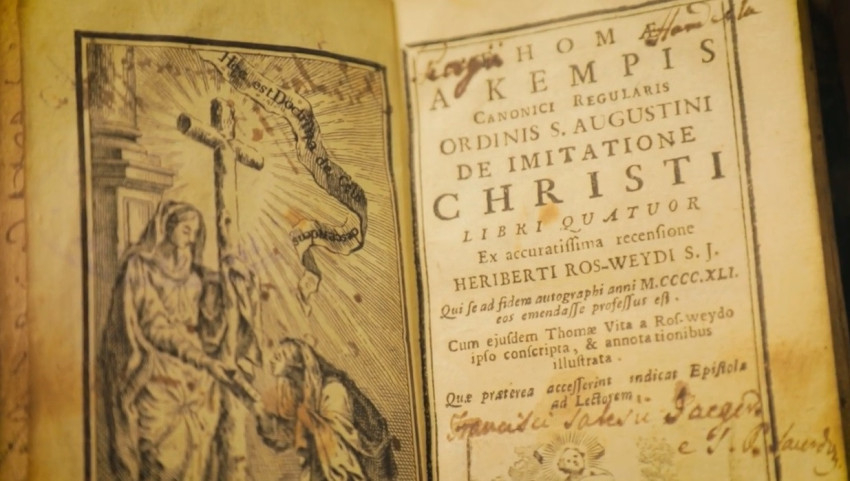 Hæc est Doctrina de Cælo
descendens
THOMÆ
A KEMPIS
CANONICI REGULARIS
ORDINIS S. AUGUSTINI
DE IMITATIONE
CHRISTI
LIBRI QUATUOR
Ex accuratiſſima recenſione
HERIBERTI ROS-WEYDI S. J.
Qui ſe ad fidem autographi anni M.CCCC.XLI.
eos emendaſſe profeſſus eſt.
Cum ejuſdem Thomæ Vita a Roſ-weydo
ipſo conſcripta, & annotationibus
illuſtrata.
Quæ præterea acceſſerint indicat Epiſtola
ad Lectorem.
Franciſci